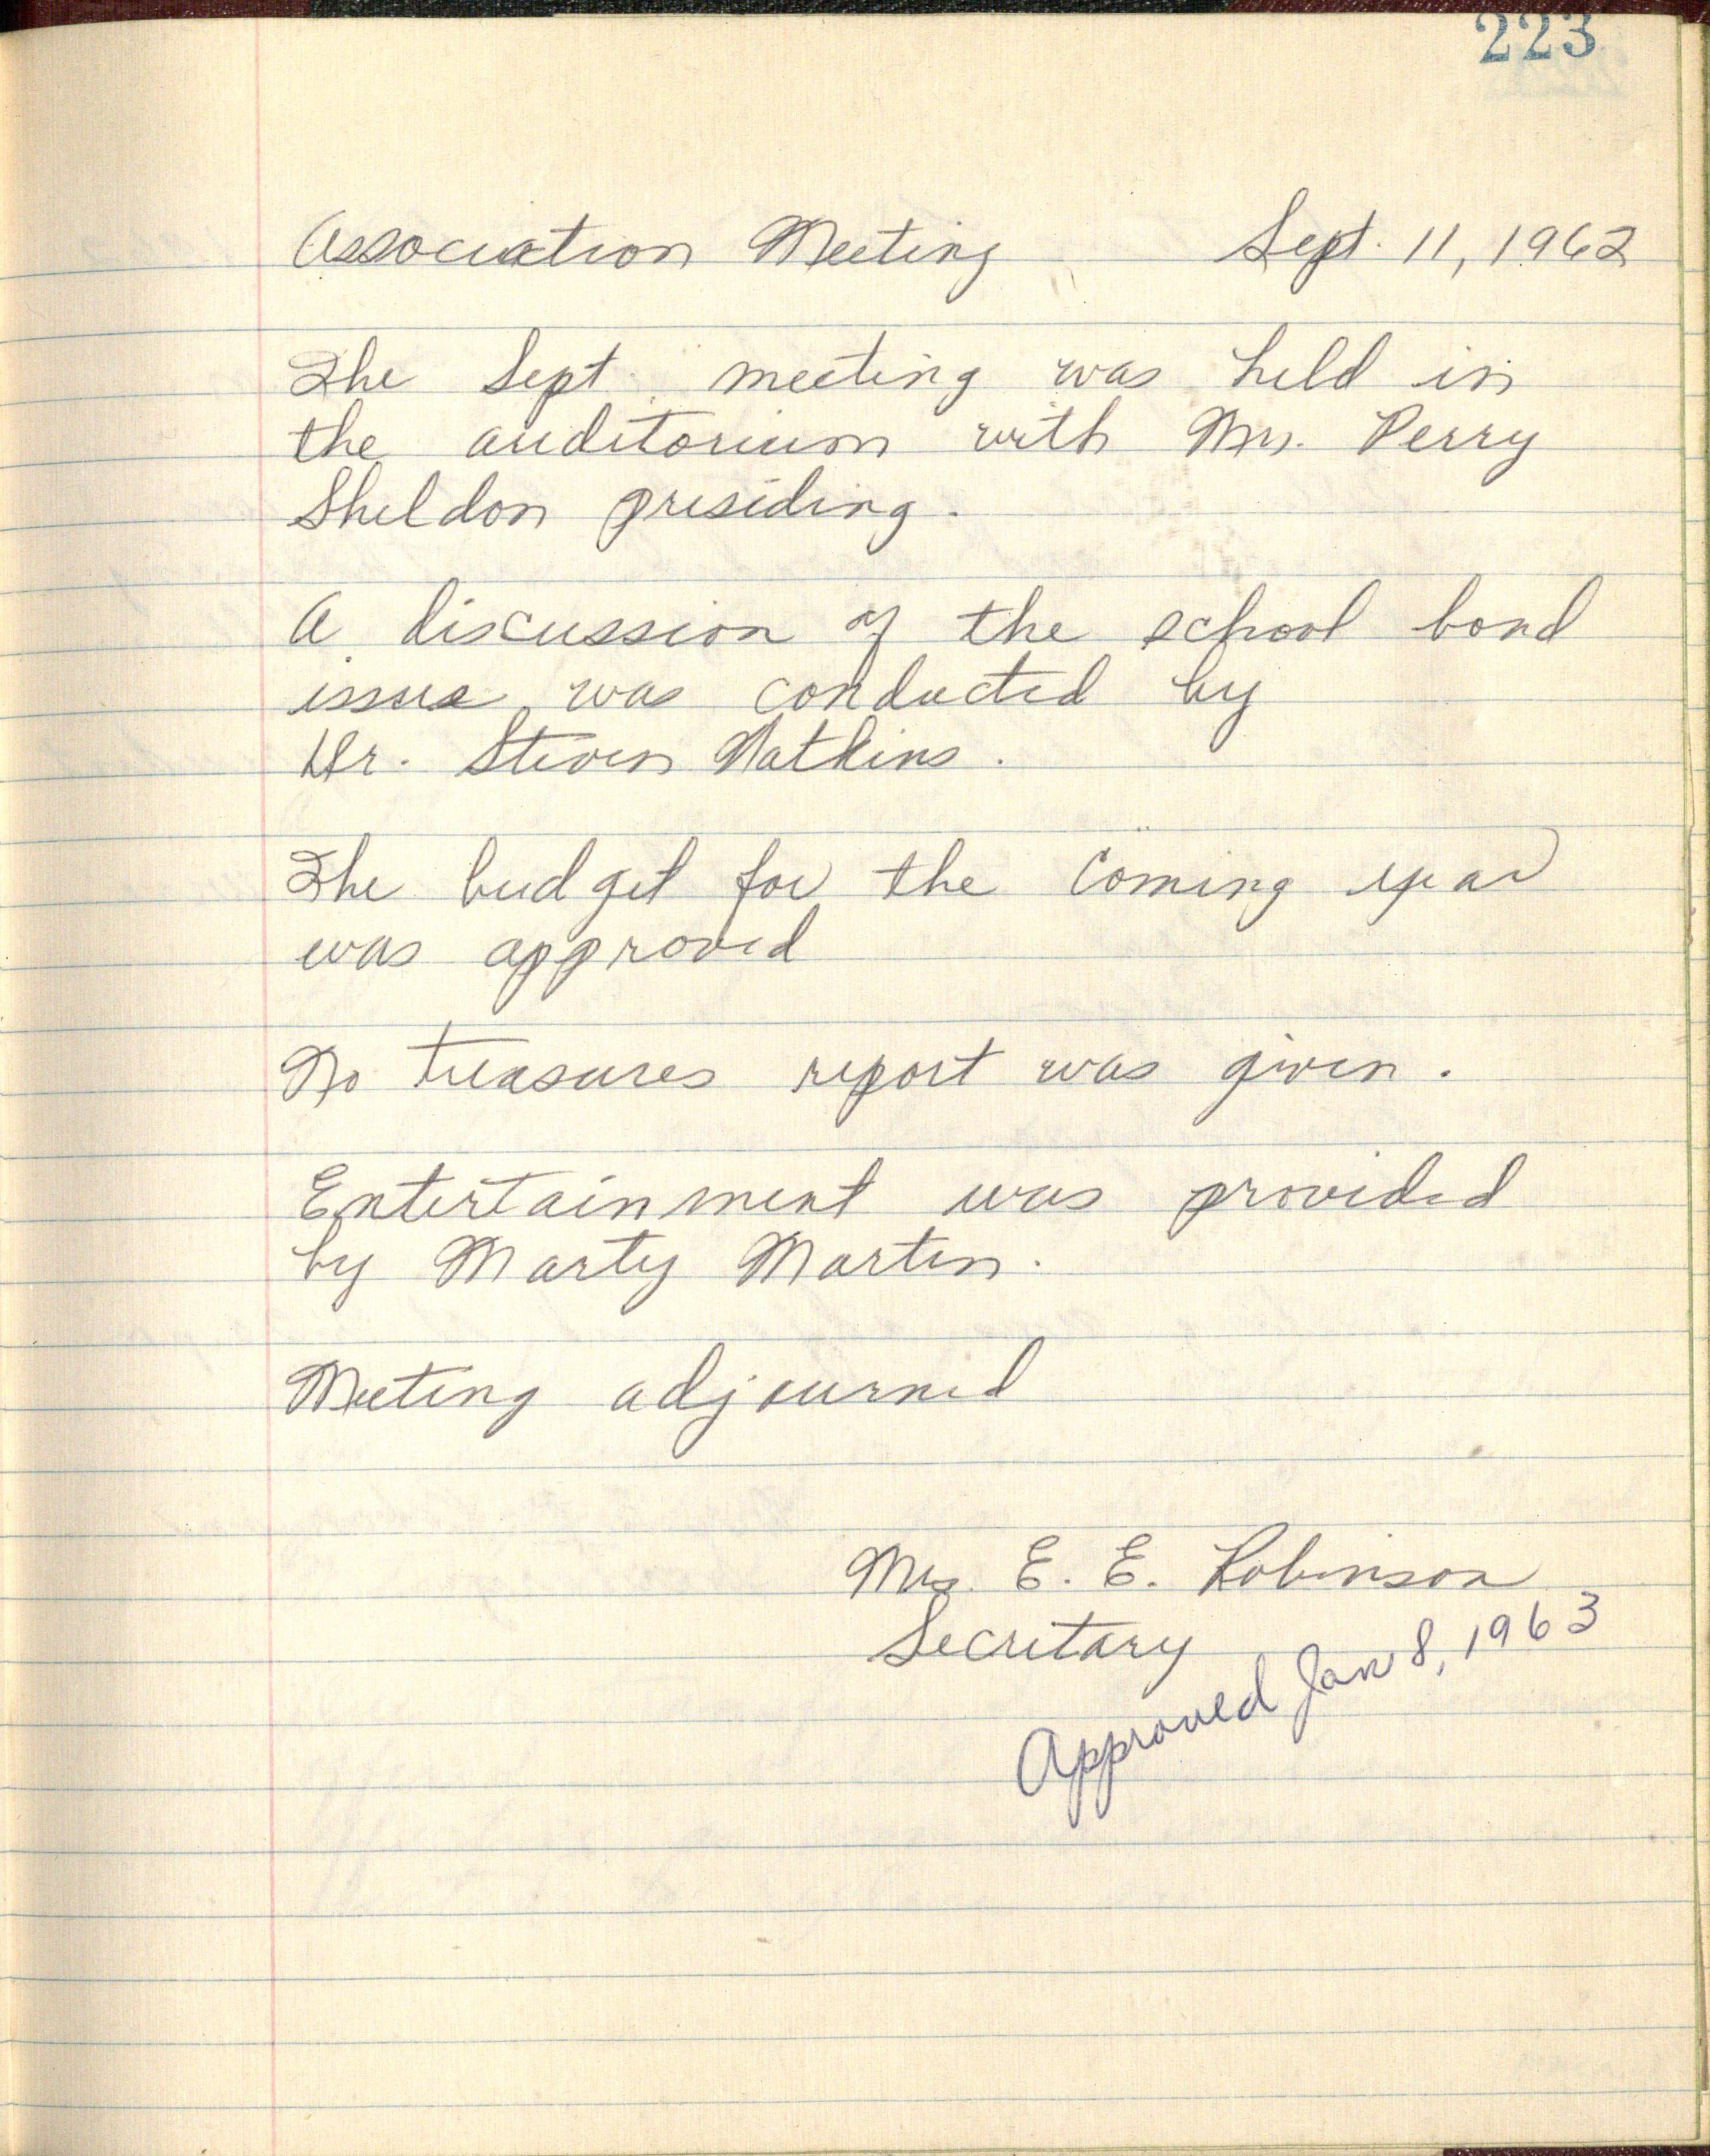 223
Association Meeting Sept. 11, 1962
The Sept. meeting was held in
the auditorium with Mrs. Perry
Sheldon presiding.
A discussion of the school bond
issue was conducted by
Dr. Steven Watkins.
The budget for the Coming year
was approved
No treasures report was given.
Entertainment was provided
by Marty Martin.
Meeting adjourned
Mrs. E. E. Robinson
Secretary
Approved Jan 8, 1963